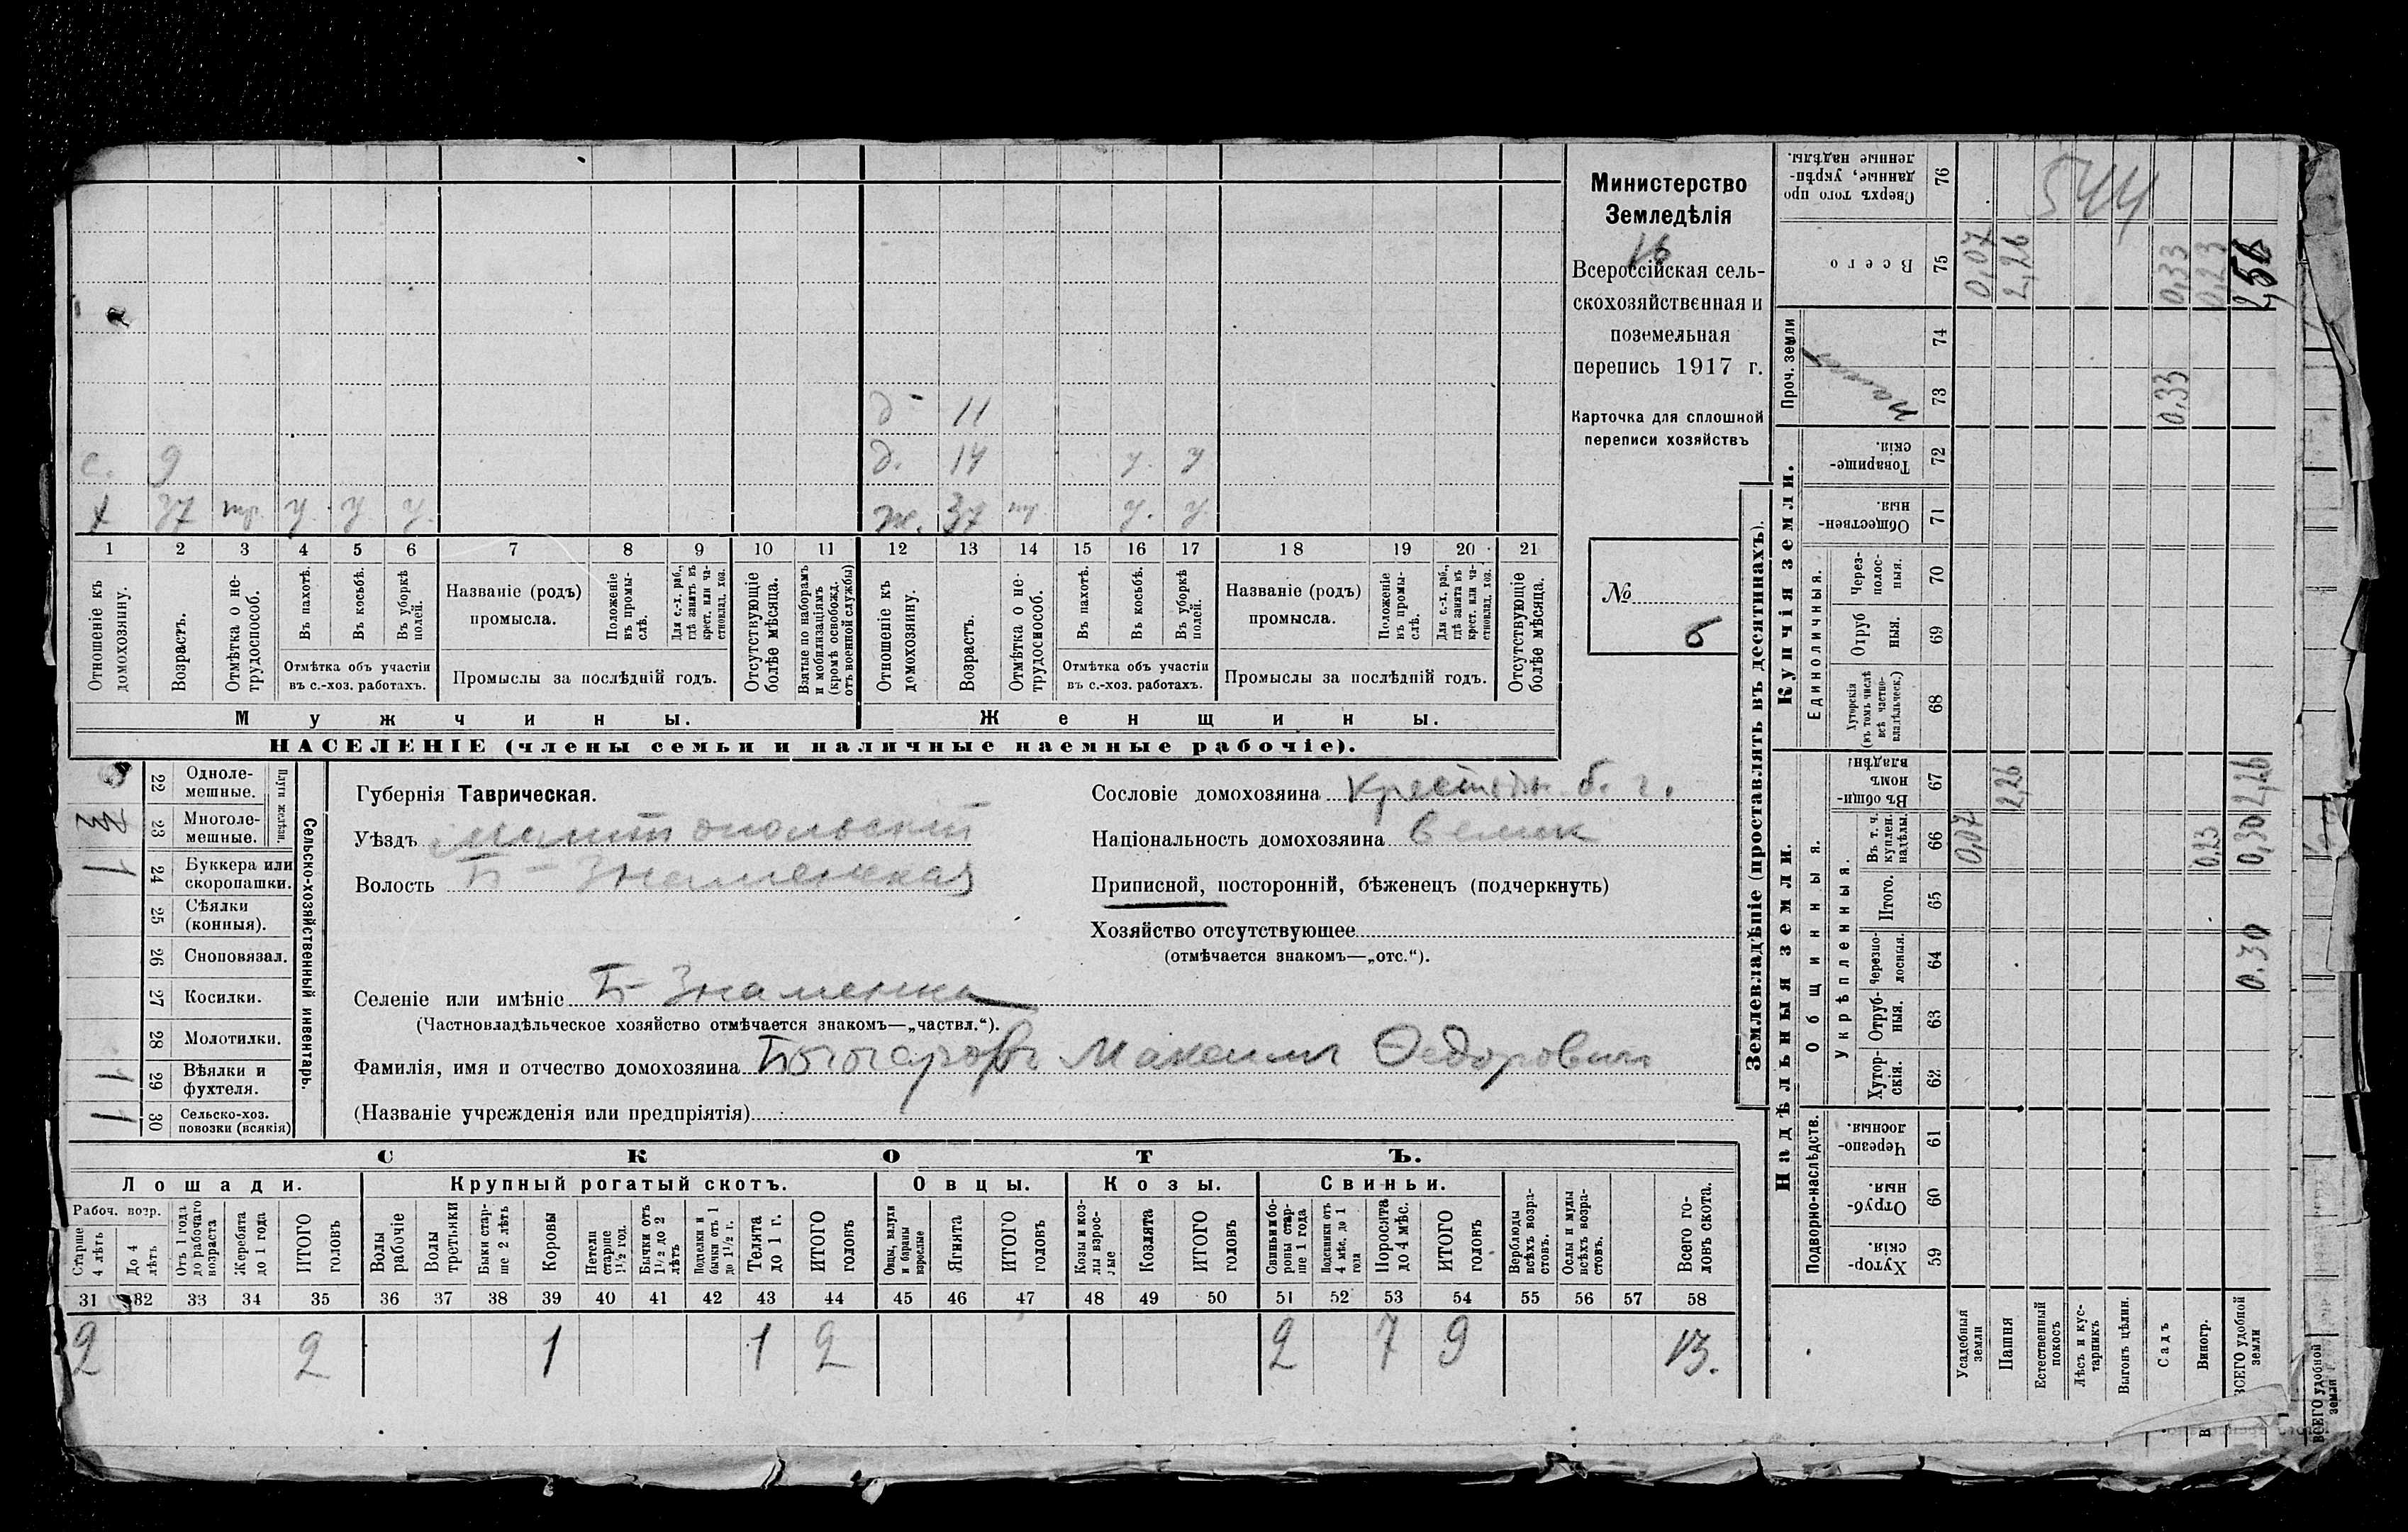 Министерство
Земледѣлія
16
Всероссійская сель-
скохозяйственная и
поземельная
перепись 1917 г.
Карточка для сплошной
переписи хозяйствъ
№
6
д 11
с. 9 д. 14 у. у
х 37 тр. у. у. у. ж. 37 тр. у. у.
1 2 3 4 5 6 7 8 9 10 11 12 13 14 15 16 17 18 19 20 21
Отношеніе къ домохозяину.
Возрастъ.
Отмѣтка о не-трудоспособ.
Въ пахотѣ.
Въ косьбѣ.
Въ уборкѣ полей.
Отмѣтка объ участіи
въ с.-хоз. работахъ.
Названіе (родъ)
промысла.
Положеніе въ промы-слѣ.
Для с.-х. раб., гдѣ занятъ въ крест. или ча-стновлад. хоз.
Промыслы за послѣдній годъ.
Отсутствующіе болѣе мѣсяца.
Взятые по наборамъ и мобилизаціямъ (кромѣ освобожд. отъ военной службы)
Отношеніе къ домохозяину.
Возрастъ.
Отмѣтка о не-трудоспособ.
Въ пахотѣ.
Въ косьбѣ.
Въ уборкѣ полей.
Отмѣтка объ участіи
въ с.-хоз. работахъ.
Названіе (родъ)
промысла.
Положеніе въ промы-слѣ.
Для с.-х. раб., гдѣ занята въ крест. или ча-стновлад. хоз.
Промыслы за послѣдній годъ.
Отсутствующіе болѣе мѣсяца.
Мужчины. Женщины.
НАСЕЛЕНІЕ (члены семьи и наличные наемные рабочіе).
Сельско-хозяйственный инвентарь.
Плуги желѣзн.
22 Одноле-мешные.
23 Многоле-мешные.
1 24 Буккера или скоропашки.
25 Сѣялки (конныя).
26 Сноповязал.
27 Косилки.
28 Молотилки.
1 29 Вѣялки и фухтеля.
1 30 Сельско-хоз. повозки (всякія)
Губернія Таврическая.
Уѣздъ Мелитопольскій
Волость Б-Знаменская
Сословіе домохозяина Крестьян. б. г.
Національность домохозяина велик
Приписной, посторонній, бѣженецъ (подчеркнуть)
Хозяйство отсутствующее
(отмѣчается знакомъ—„отс.“).
Селеніе или имѣніе Б-Знаменка
(Частновладѣльческое хозяйство отмѣчается знакомъ—„частвл.“).
Фамилія, имя и отчество домохозяина Максимъ Ѳедоровичъ
(Названіе учрежденія или предпріятія)
СКОТЪ.
Лошади. Крупный рогатый скотъ. Овцы. Козы. Свиньи.
Рабоч. возр.
Старше 4 лѣтъ
До 4 лѣтъ
Отъ 1 года до рабочаго возраста
Жеребята до 1 года
ИТОГО головъ
Волы рабочіе
Волы третьяки
Быки стар-ше 2 лѣтъ
Коровы
Нетели старше 1½ год.
Бычки отъ 1½ до 2 лѣтъ
Подтелки и бычки отъ 1 до 1½ г.
Телята до 1 г.
ИТОГО головъ
Овцы, валухи и бараны взрослые
Ягнята
ИТОГО головъ
Козы и коз-лы взрос-лые
Козлята
ИТОГО головъ
Свиньи и бо-ровы стар-ше 1 года
Подсвинки отъ 4 мѣс. до 1 года
Поросята до 4 мѣс.
ИТОГО головъ
Верблюды всѣхъ возра-стовъ.
Ослы и мулы всѣхъ возра-стовъ.
Всего го-ловъ скота.
31 32 33 34 35 36 37 38 39 40 41 42 43 44 45 46 47 48 49 50 51 52 53 54 55 56 57 58
2 2 1 1 2 2 7 9 13.
Землевладѣніе (проставлять въ десятинахъ).
Надѣльныя земли. Купчія земли. Проч. земли
Подворно-наслѣдств. Общинныя. Укрѣпленныя. Единоличныя.
Хутор-скія. 59
Отруб-ныя. 60
Черезпо-лосныя. 61
Хутор-скія. 62
Отруб-ныя. 63
Черезпо-лосныя. 64
Итого. 65
Въ т. ч. куплен. надѣлы. 66
Въ общин-номъ владѣн. 67
Хуторскія (въ томъ числѣ всѣ частно-владѣльческ.) 68
Отруб ныя. 69
Через-полос-ныя. 70
Обществен-ныя. 71
Товарище-скія. 72
73
74
Всего 75
Сверхъ того про данные, укрѣп-ленные надѣлы. 76
544
Усадебныя земли 0,07 0,07
Пашня 2,26 2,26
Естественный покосъ
Лѣсъ и кус-тарникъ
Выгонъ цѣлин.
Садъ 0,33 0,33
Виногр. 0,23 0,23
ВСЕГО удобной земли 0.30 0,30 2,26 2,56
ВСЕГО удобной земли